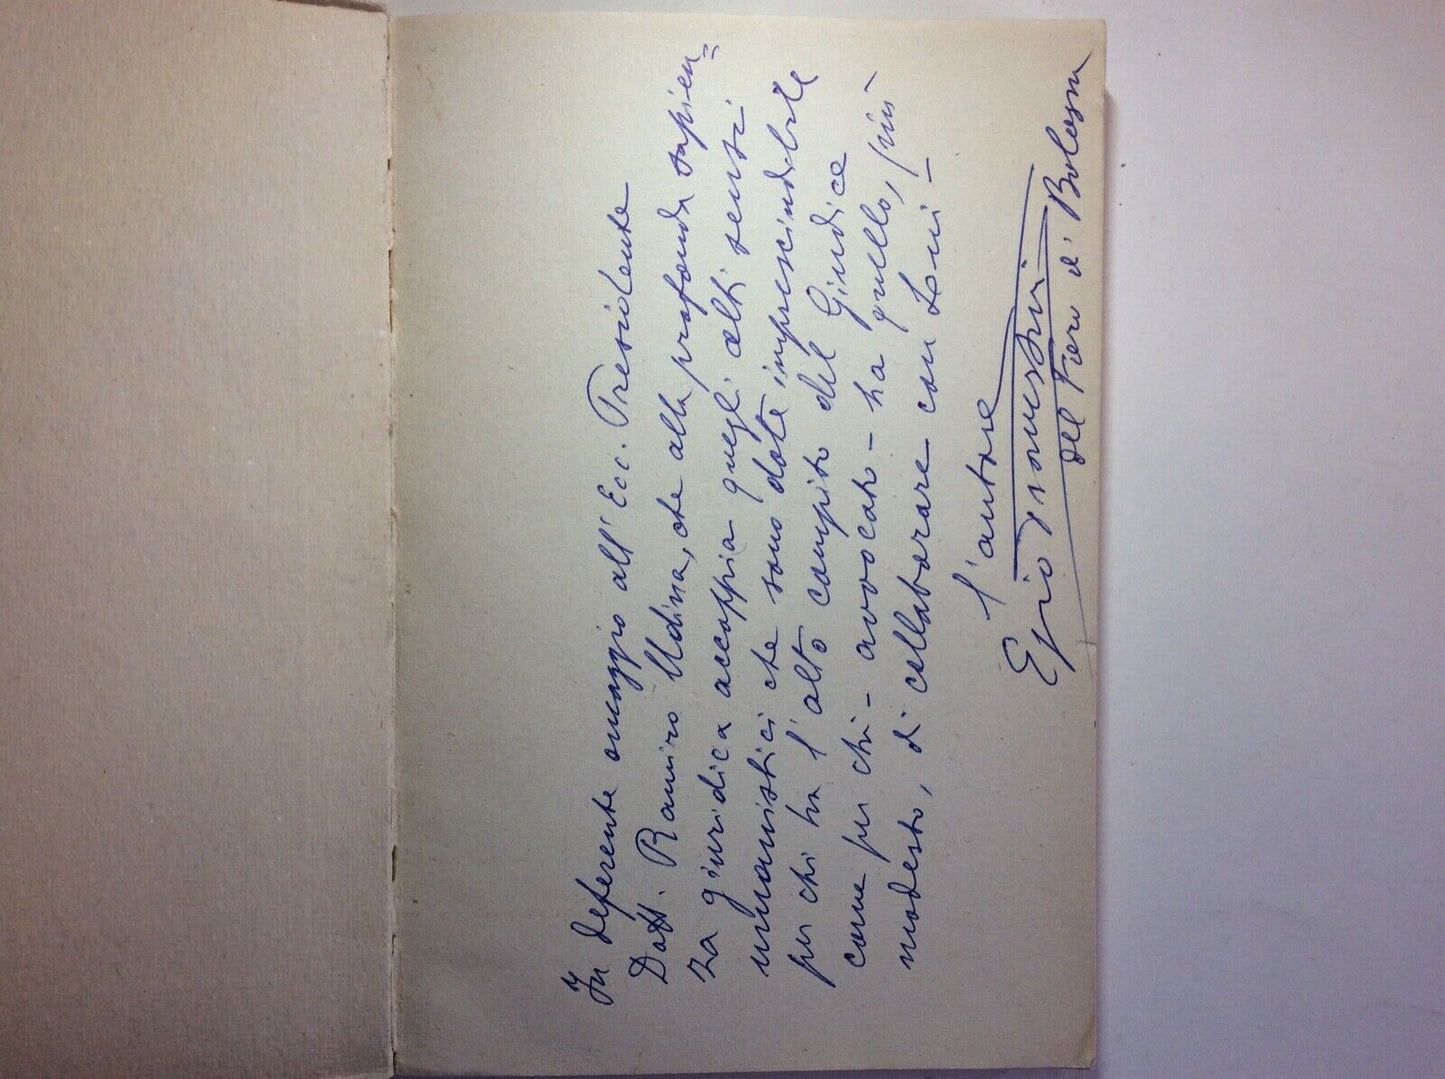 In deferente omaggio all'Ecc. Presidente
Dott. Ramiro Udina, che alla profonda sapien=
za giuridica accoppia quegli alti sensi
umanistici che sono dote imprescindibile
per chi ha l'alto compito del Giudice
come per chi - avvocato - ha quello, più
modesto, di collaborare con Lui -
l'autore
Egio
del Foro di Bologna